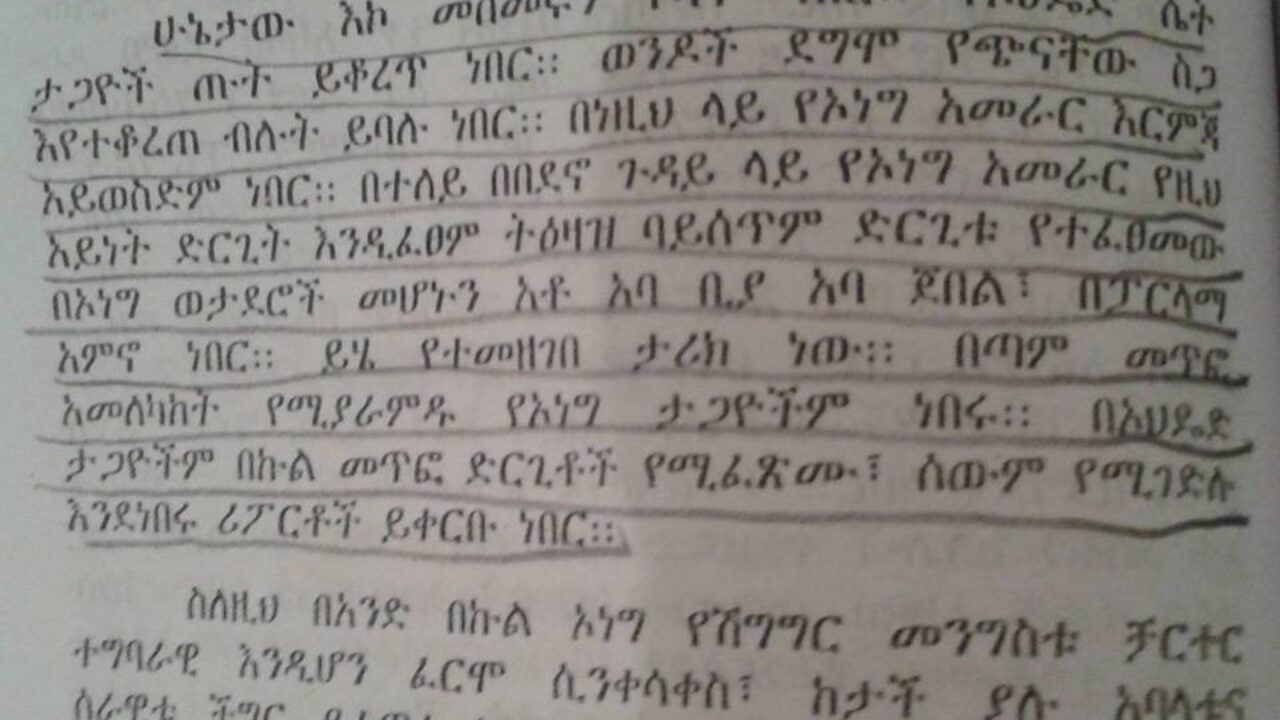 ሁኔታው እስከ ሴት
ታጋዮች ጡት ይቆረጥ ነበር፡፡ ወንዶች ደግሞ የጫናቸው ስጋ
እየተቆረጠ ብሉት ይባሉ ነበር፡፡ በነዚህ ላይ የኦነግ አመራር እርምጃ
አይወስድም ነበር፡፡ በተለይ በበደኖ ጉዳይ ላይ የኦነግ አመራር የዚህ
አይነት ድርጊት እንዲፈፀም ትዕዛዝ ባይሰጥም ድርጊቱ የተፈፀመው
በኦነግ ወታደሮች መሆኑን አቶ አባ ቢያ አባ ጆበል፤ በፓርላማ
አምኖ ነበር፡፡ ይሄ የተመዘገበ ታሪክ ነው፡፡ በጣም መጥፎ
አመለካከት የሚያራምዱ የኦነግ ታጋዮችም ነበሩ፡፡ በኦህዴድ
ታጋዮችም በኩል መጥፎ ድርጊቶች የሚፈጽሙ፤ ሰውም የሚገድሉ
እንደነበሩ ሪፖርቶች ይቀርቡ ነበር፡፡
ስለዚህ በአንድ በኩል ኦነግ የሽግግር መንግስቱ ቻርተር
ተግባራዊ እንዲሆን ፈርሞ ሲንቀሳቀስ፤ ከታች ያሉ አባላቱና
ሰራዊቱ ችግር